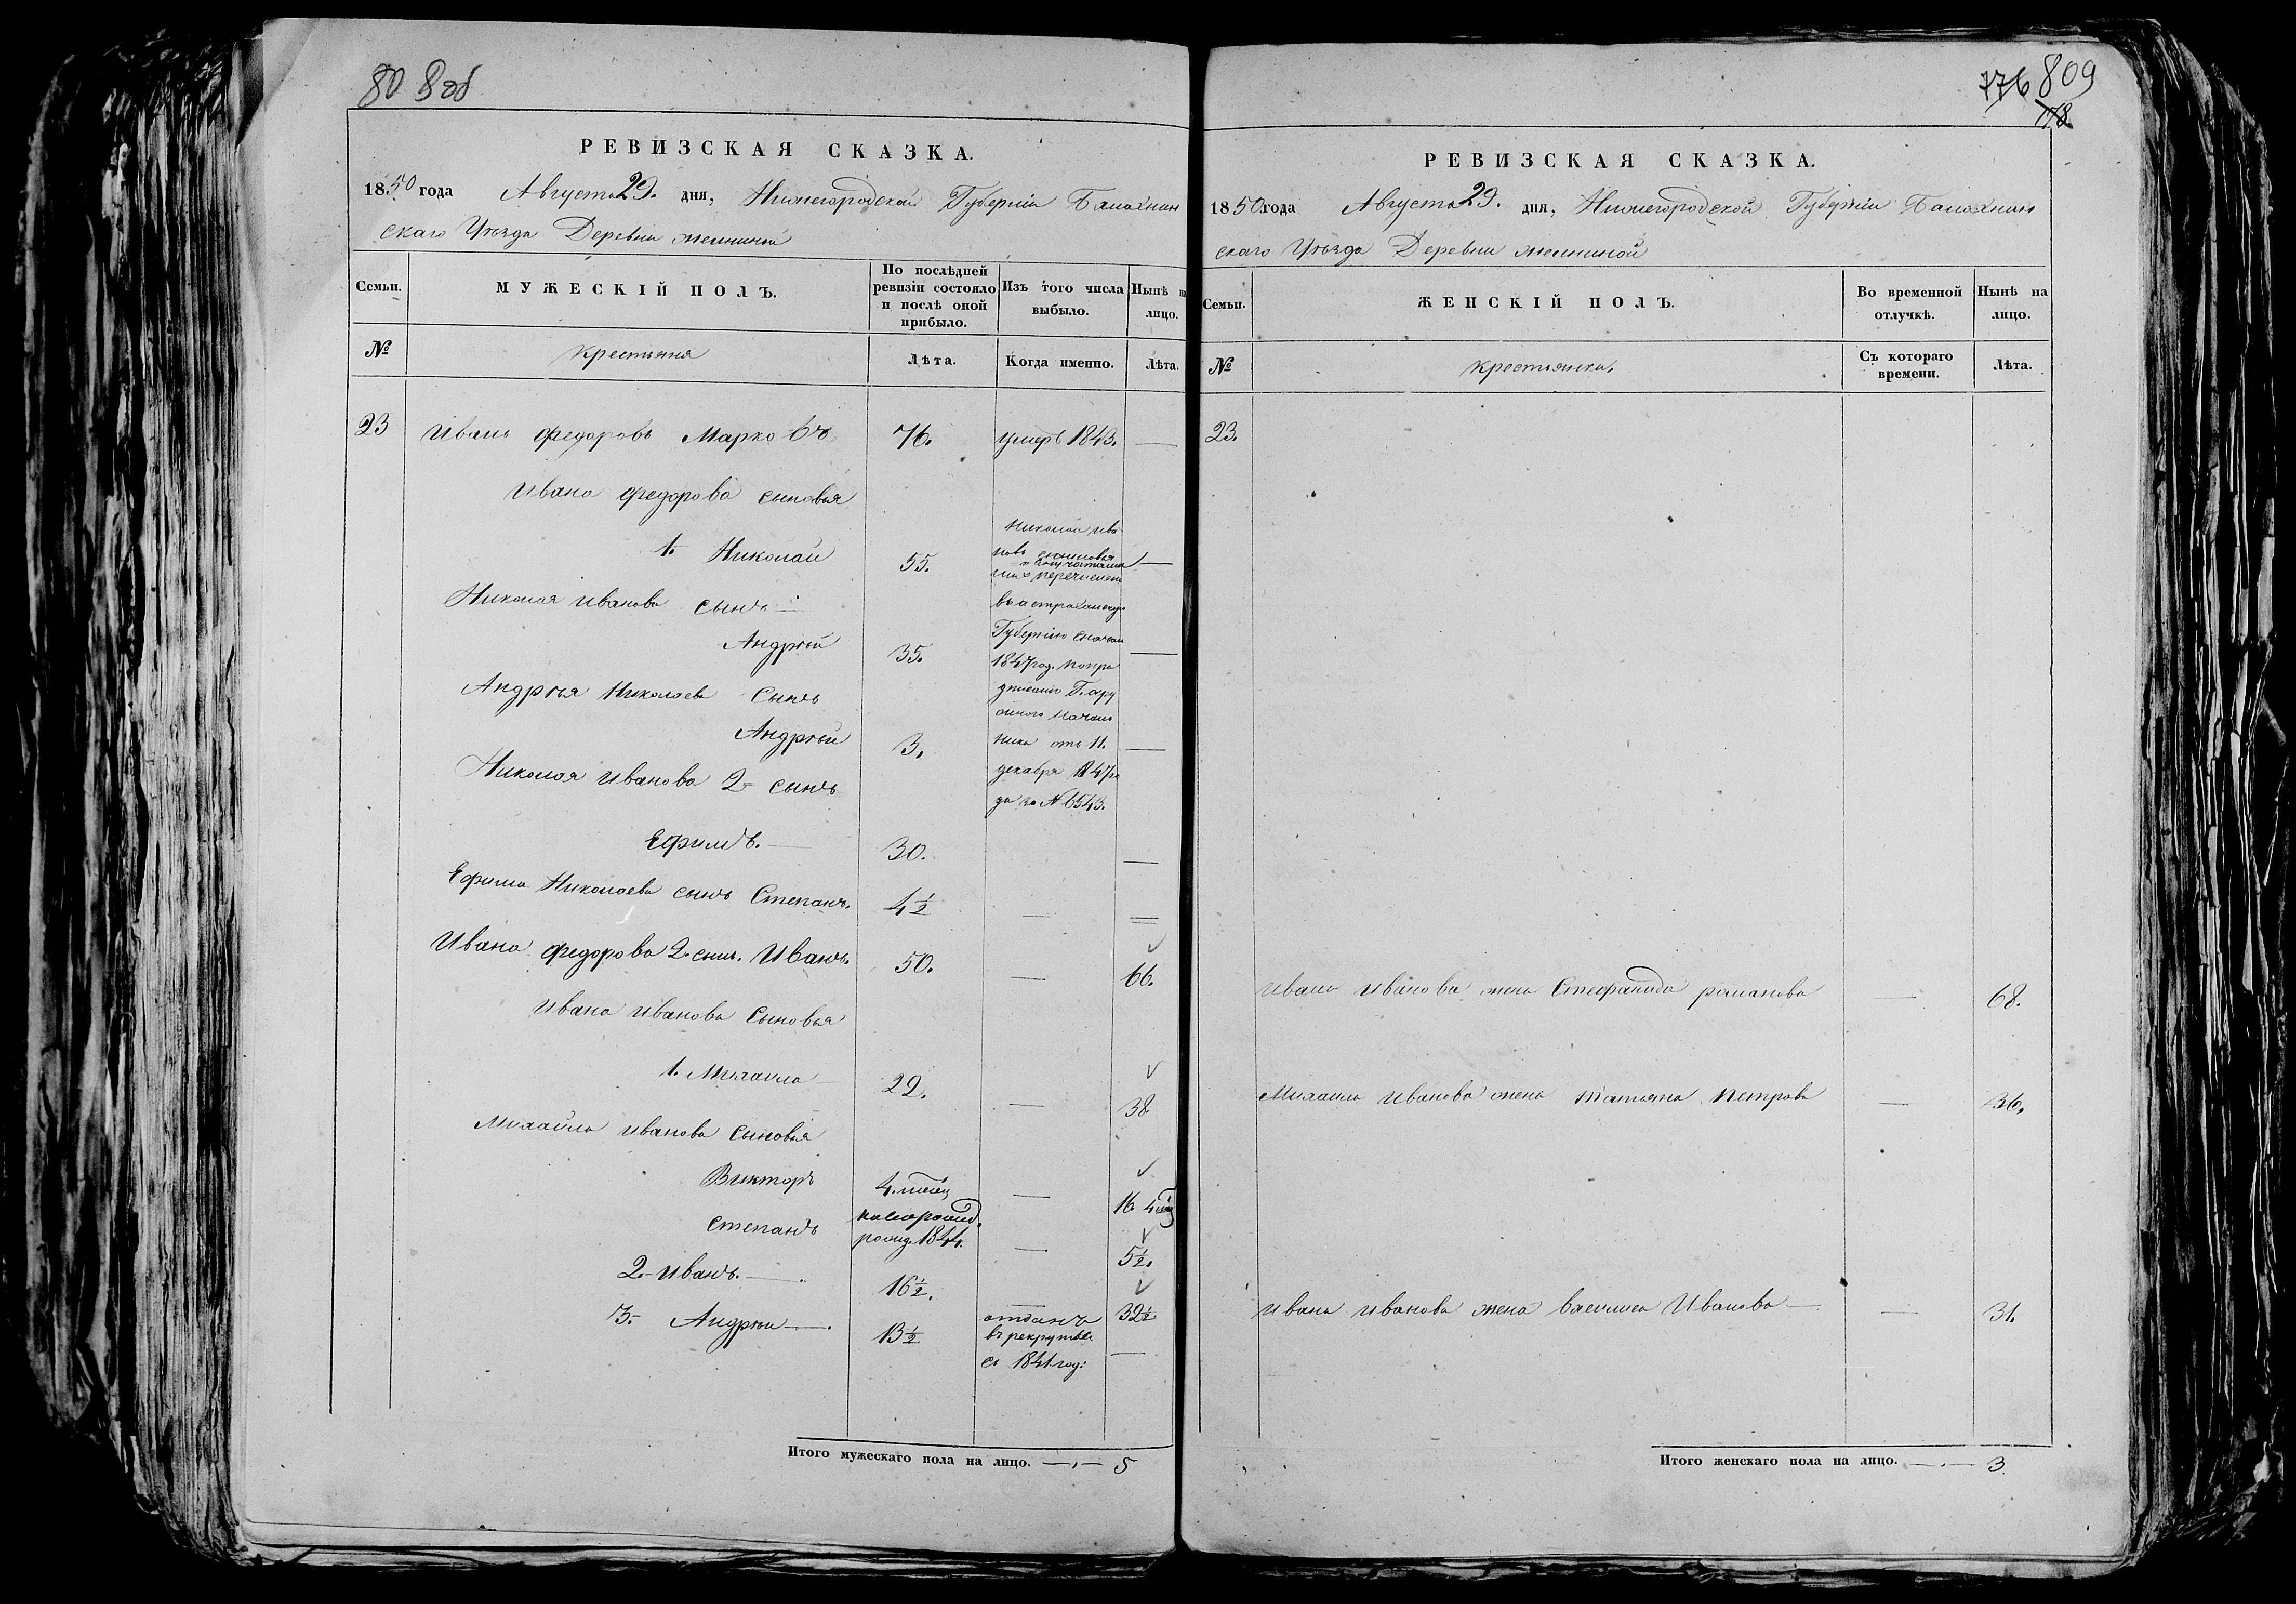 80 8об
РЕВИЗСКАЯ СКАЗКА.
1850 года Августа 29. дня, Нижегородской Губернiи Балахнин
скаго Уѣзда Деревни Желниной
Семьи.
МУЖЕСКIЙ ПОЛЪ.
По послѣдней
ревизiи состояло
и послѣ оной
прибыло.
Изъ того числа
выбыло.
Нынѣ н
лицо.
№
крестьяна
Лѣта.
Когда именно.
Лѣта.
23 Иванъ Федоровъ Марковъ 76. умеръ 1843. —
Ивана Федорова сыновья
1. Николай 55. —
Николай Ива
новъ сыновья
перечислен
въ астраханскую
Губернiю сначала
1847 год. по пре
дписанiю Г. окру
жного Началь
ника отъ 11.
декабря 1847 го
да за № 6543.
Николая Иванова сынъ —
Андрѣй 35. —
Андрѣя Николаева Сынъ
Андрѣй 3. —
Николая Иванова 2-й сынъ
Ефимъ. — 30. —
Ефима Николаева сынъ Степанъ. 4½ —
Ивана Федорова 2-й сынъ. Иванъ. 50. — 66.
Ивана Иванова Сыновья
1. Михаила 22. — 38
Михайлы Иванова Сыновья
Викторъ 4. — 16 4
Степанъ
рожд. 1844. — 5½.
2. Иванъ. — 16½. — 32½
3. Андрѣй — 13½
отданъ
въ рекруты
съ 1841 год: —
Итого мужескаго пола на лицо. — 5
776 809
78
РЕВИЗСКАЯ СКАЗКА.
1850 года Августа 29. дня, Нижегородской Губернiи Балахнин
скаго Уѣзда Деревни Желниной
Семьи.
ЖЕНСКIЙ ПОЛЪ.
Во временной
отлучкѣ.
Нынѣ на
лицо.
№
крестьянка.
Съ котораго
времени.
Лѣта.
23.
Ивана Иванова жена Стефанида Романова — 68.
Михаила Иванова жена Татьяна Петрова — 36.
Ивана Иванова жена Василиса Иванова — 31.
Итого женскаго пола на лицо. — 3.